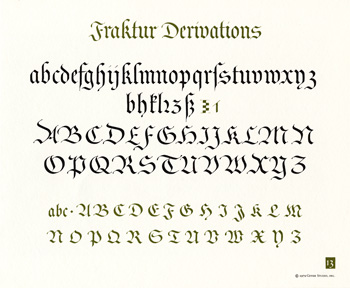 Fraktur Derivations
abcdefghijklmnopqrſstuvwxyz
bhklꝛzß
ABCDEFGHIJKLMN
OPQRSTUVWXYZ
abc · A B C D E F G H I J K L M
N O P Q R S T U V W X Y Z
13